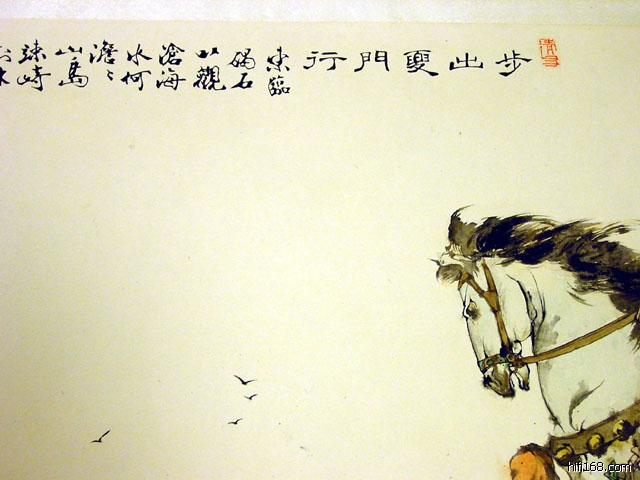 步出夏門行
東臨
碣石
以觀
滄海
水何
澹〻
山島
竦峙
hifi168.com